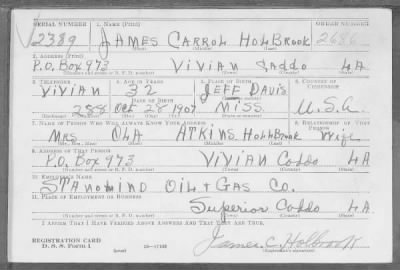 SERIAL NUMBER 1. NAME (Print) ORDER NUMBER
2389 JAMES CARROL HOLBROOK 2686
(First) (Middle) (Last)
2. ADDRESS (Print)
P.O. Box 973 VIVIAN Caddo LA
(Number and street or R. F. D. number) (Town) (County) (State)
3. TELEPHONE 4. AGE IN YEARS 5. PLACE OF BIRTH 6. COUNTRY OF CITIZENSHIP
VIVIAN 32 JEFF DAVIS
DATE OF BIRTH
288 Oct 28 1907 MISS. U.S.A.
7. NAME OF PERSON WHO WILL ALWAYS KNOW YOUR ADDRESS 8. RELATIONSHIP OF THAT PERSON
MRS OLA ATKINS HOLLBROOK Wife
(Mr., Mrs., Miss) (First) (Middle) (Last)
9. ADDRESS OF THAT PERSON
P.O. Box 973 VIVIAN Caddo LA
(Number and street or R. F. D. number) (Town) (County) (State)
10. EMPLOYER'S NAME
STANOLIND OIL + GAS CO.
11. PLACE OF EMPLOYMENT OR BUSINESS
Superior Caddo LA
(Number and street or R. F. D. number) (Town) (County) (State)
I AFFIRM THAT I HAVE VERIFIED ABOVE ANSWERS AND THAT THEY ARE TRUE.
REGISTRATION CARD
D. S. S. Form 1 16—17105 James C. Holbrook
(Registrant's signature)